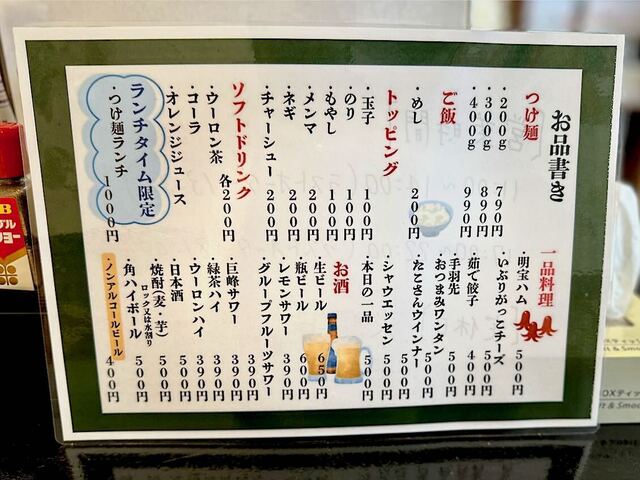 お品書き
つけ麺
・200g 790円
・300g 890円
・400g 990円
ご飯
・めし 200円
トッピング
・玉子 100円
・のり 100円
・もやし 100円
・メンマ 200円
・ネギ 200円
・チャーシュー 200円
ソフトドリンク 各200円
・ウーロン茶
・コーラ
・オレンジジュース
ランチタイム限定
・つけ麺ランチ 1000円
一品料理
・明宝ハム 500円
・いぶりがっこチーズ 500円
・茹で餃子 400円
・手羽先 500円
・おつまみワンタン 500円
・たこさんウインナー 500円
・シャウエッセン 500円
・本日の一品 500円
お酒
・生ビール 650円
・瓶ビール 600円
・レモンサワー 390円
・グループフルーツサワー 390円
・巨峰サワー 390円
・緑茶ハイ 390円
・ウーロンハイ 390円
・日本酒 500円
・焼酎(麦・芋) 500円
ロック又は水割り
・角ハイボール 500円
・ノンアルコールビール 400円